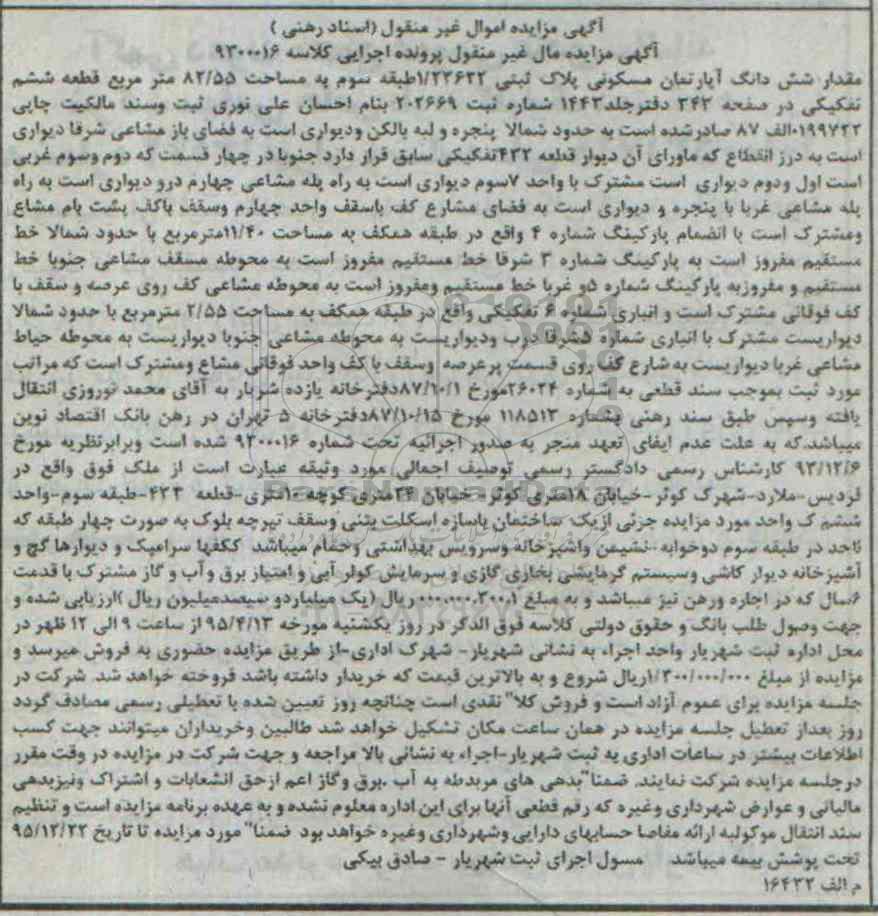 آگهی مزایده اموال غیر منقول (اسناد رهنی )
آگهی مزایده مال غیر منقول پرونده اجرایی کلاسه ۹۳۰۰۰۱۶
مقدار شش دانگ آپارتمان مسکونی پلاک ثبتی ۱/۲۳۶۳۲طبقه سوم به مساحت ۸۲/۵۵ متر مربع قطعه ششم
تفکیکی در صفحه ۳۴۳ دفترجلد۱۴۴۳ شماره ثبت ۲۰۲۶۶۹ بنام احسان علی نوری ثبت وسند مالکیت چاپی
۰۱۹۹۷۳۲الف ۸۷ صادرشده است به حدود شمالا پنجره و لبه بالکن ودیواری است به فضای باز مشاعی شرقا دیواری
است به درز انقطاع که ماورای آن دیوار قطعه ۴۳۲تفکیکی سابق قرار دارد جنوبا در چهار قسمت که دوم وسوم غربی
است اول ودوم دیواری است مشترک با واحد ۷سوم دیواری است به راه پله مشاعی چهارم درو دیواری است به راه
پله مشاعی غربا با پنجره و دیواری است به فضای مشارع کف باسقف واحد چهارم وسقف باکف پشت بام مشاع
ومشترک است با انضمام پارکینگ شماره ۴ واقع در طبقه همکف به مساحت ۱۱/۴۰مترمربع با حدود شمالا خط
مستقیم مفروز است به پارکینگ شماره ۳ شرقا خط مستقیم مفروز است به محوطه مسقف مشاعی جنوبا خط
مستقیم و مفروزبه پارکینگ شماره ۵و غربا خط مستقیم ومفروز است به محوطه مشاعی کف روی عرصه و سقف با
کف فوقانی مشترک است و انباری شماره ۶ تفکیکی واقع در طبقه همکف به مساحت ۲/۵۵ مترمربع با حدود شمالا
دیواریست مشترک با انباری شماره ۵شرقا درب ودیواریست به محوطه مشاعی جنوبا دیواریست به محوطه حیاط
مشاعی غربا دیواریست به شارع کف روی قسمت پرعرصه وسقف با کف واحد فوقانی مشاع ومشترک است که مراتب
مورد ثبت بموجب سند قطعی به شماره ۲۶۰۲۴مورخ ۸۷/۱۰/۱دفترخانه یازده شهریار به آقای محمد نوروزی انتقال
یافته وسپس طبق سند رهنی بشماره ۱۱۸۵۱۳ مورخ ۸۷/۱۰/۱۵دفترخانه ۵ تهران در رهن بانک اقتصاد نوین
میباشد.که به علت عدم ایفای تعهد منجر به صدور اجرائیه تحت شماره ۹۳۰۰۰۱۶ شده است وبرابرنظریه مورخ
۹۳/۱۲/۶ کارشناس رسمی دادگستر رسمی توصیف اجمالی مورد وثیقه عبارت است از ملک فوق واقع در
فردیس-ملارد-شهرک کوثر-خیابان ۱۸متری کوثر-خیابان ۲۴متری کوچه۱۰متری-قطعه ۴۳۳-طبقه سوم-واحد
ششم ک واحد مورد مزایده جزئی ازیک ساختمان باسازه اسکلت بتنی وسقف تیرچه بلوک به صورت چهار طبقه که
واحد در طبقه سوم دوخوابه-نشیمن واشپزخانه وسرویس بهداشتی وحمام میباشد ککفها سرامیک و دیوارها گچ و
آشپزخانه دیوار کاشی وسیستم گرمایشی بخاری گازی و سرمایش کولر آبی و امتیاز برق وآب و گاز مشترک با قدمت
۶سال که در اجاره ورهن نیز میباشد و به مبلغ ۱.۳۰۰.۰۰۰.۰۰۰ریال (یک میلیاردو سیصدمیلیون ریال )ارزیابی شده و
جهت وصول طلب بانگ و حقوق دولتی کلاسه فوق الذکر در روز یکشنبه مورخه ۹۵/۴/۱۳ از ساعت ۹ الی ۱۲ ظهر در
محل اداره ثبت شهریار واحد اجراء به نشانی شهریار- شهرک اداری-از طریق مزایده حضوری به فروش میرسد و
مزایده از مبلغ ۱/۳۰۰/۰۰۰/۰۰۰ریال شروع و به بالاترین قیمت که خریدار داشته باشد فروخته خواهد شد. شرکت در
جلسه مزایده برای عموم آزاد است و فروش کلا" نقدی است چنانچه روز تعیین شده با تعطیلی رسمی مصادف گردد
روز بعداز تعطیل جلسه مزایده در همان ساعت مکان تشکیل خواهد شد طالبین وخریداران میتوانند جهت کسب
اطلاعات بیشتر در ساعات اداری به ثبت شهریار-اجراء به نشانی بالا مراجعه و جهت شرکت در مزایده در وقت مقرر
درجلسه مزایده شرکت نمایند. ضمنا"بدهی های مربدطه به آب .برق وگاز اعم ازحق انشعابات و اشتراک ونیزبدهی
مالیاتی و عوارض شهرداری وغیره که رقم قطعی آنها برای این اداره معلوم نشده و به عهده برنامه مزایده است و تنظیم
سند انتقال موکولبه ارائه مفاصا حسابهای دارایی وشهرداری وغیره خواهد بود ضمنا" مورد مزایده تا تاریخ ۹۵/۱۲/۲۲
تحت پوشش بیمه میباشد مسول اجرای ثبت شهریار - صادق بیکی
م الف ۱۶۴۳۲